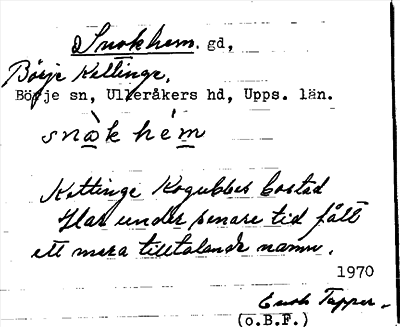 Snokhem. gd,
Börje Kettinge,
Börje sn, Ulleråkers hd, Upps. län.
snòk hém
Kettinge Kogubbes bostad
Har under senare tid fått
ett mera tilltalande namn.
1970
Erik Tapper.
(o.B.F.)